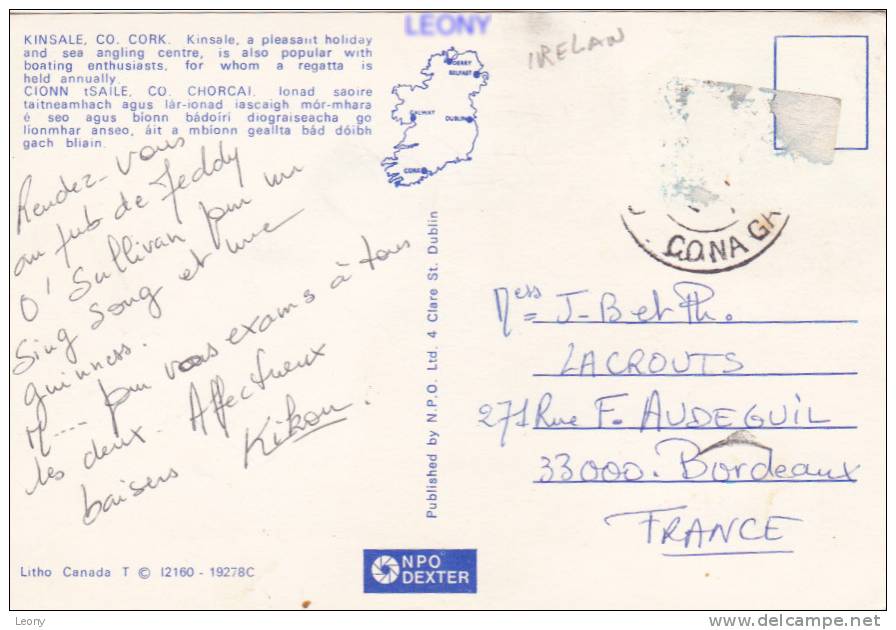 LEONY
IRELAN
KINSALE, CO. CORK. Kinsale, a pleasant holiday
and sea angling centre, is also popular with
boating enthusiasts, for whom a regatta is
held annually.
CIONN tSAILE, CO. CHORCAI. Ionad saoire
taitneamhach agus lár-ionad iascaigh mór-mhara
é seo agus bíonn bádoírí diograiseacha go
líonmhar anseo, áit a mbíonn geallta bád dóibh
gach bliain.
DERRY
BELFAST
GALWAY
DUBLIN
CORK
Rendez-vous
au pub de Teddy
O'Sullivan pour un
Sing Song et une
guinness.
M---- pour vos exams à tous
les deux. Affectueux
baisers Kikou.
Published by N.P.O. Ltd. 4 Clare St. Dublin
CONA GH
Mess J-B et Ph.
LACROUTS
271 Rue F. AUDEGUIL
33000. Bordeaux
FRANCE
Litho Canada T © I2160 - 19278C
NPO
DEXTER
Leony
www.delcampe.net